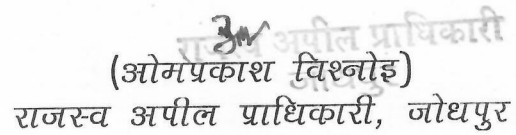 राजस्व अपील प्राधिकारी
(ओमप्रकाश विश्नोइ)
राजस्व अपील प्राधिकारी, जोधपुर